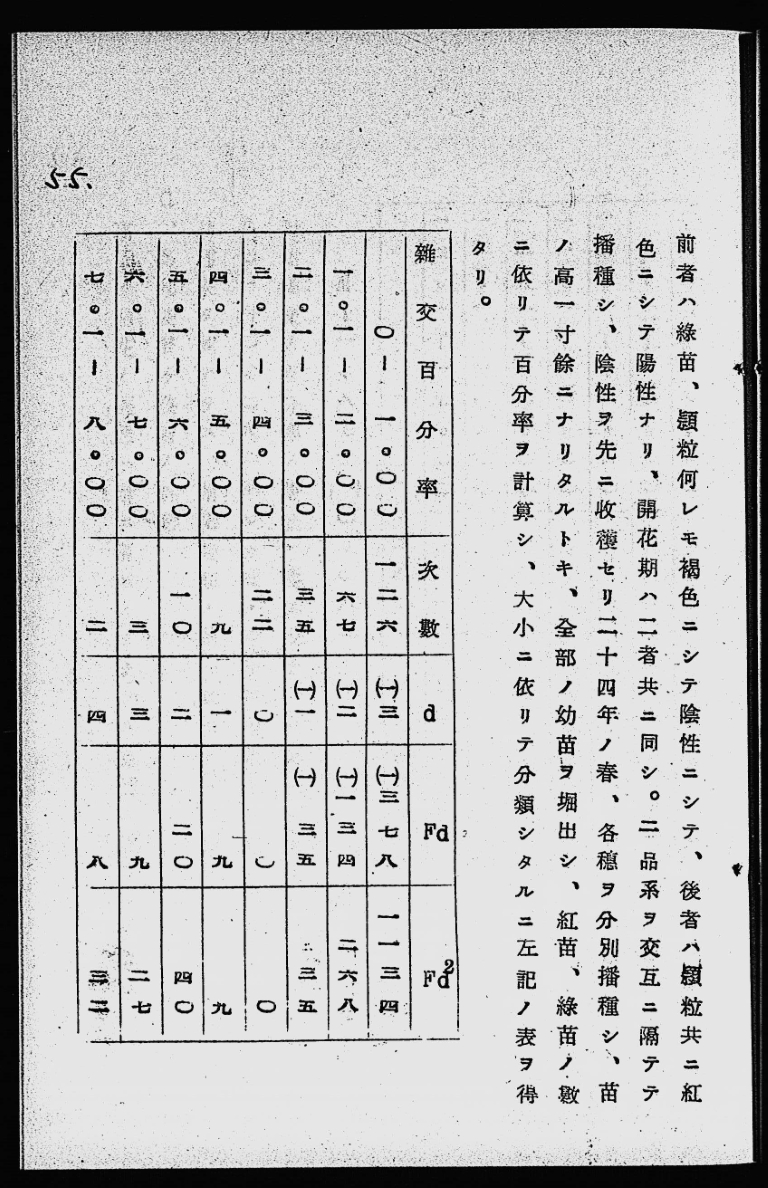 前者ハ綠苗、頴粒何レモ褐色ニシテ陰性ニシテ、後者ハ頴粒共ニ紅
色ニシテ陽性ナリ、開花期ハ二者共ニ同シ。二品系ヲ交互ニ隔テテ
播種シ、陰性ヲ先ニ收穫セリ二十四年ノ春、各穗ヲ分別播種シ、苗
ノ高一寸餘ニナリタルトキ、全部ノ幼苗ヲ堀出シ、紅苗、綠苗ノ數
ニ依リテ百分率ヲ計算シ、大小ニ依リテ分類シタルニ左記ノ表ヲ得
タリ。
雜交百分率 次數 d Fd Fd²
〇—一。〇〇 一二六 (一)三 (一)三七八 一一三四
一。〇一—二。〇〇 六七 (一)二 (一)一三四 二六八
二。〇一—三。〇〇 三五 (一)一 (一)三五 三五
三。〇一—四。〇〇 二二 〇 〇 〇
四。〇一—五。〇〇 九 一 九 九
五。〇一—六。〇〇 一〇 二 二〇 四〇
六。〇一—七。〇〇 三 三 九 二七
七。〇一—八。〇〇 二 四 八 三二
55.